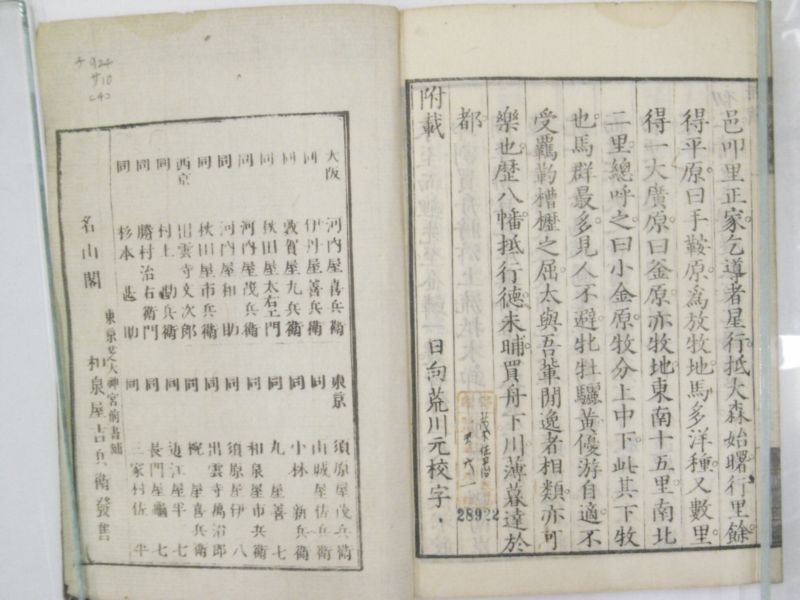 邑叩里正家乞導者星行抵大森始曙行里餘
得平原曰手鞍原爲放牧地馬多洋種又數里
得一大廣原曰釜原亦牧地東南十五里南北
二里總呼之曰小金原牧分上中下此其下牧
也馬群最多見人不避牝牡驪黃優游自適不
受羈靮槽櫪之屈太與吾輩閒逸者相類亦可
樂也歷八幡抵行德未晡買舟下川薄暮達於
都
附載 日向荒川元校字
28922
924
大阪 河內屋喜兵衛
同 伊丹屋善兵衛
同 敦賀屋九兵衛
同 秋田屋太右衛門
同 河內屋茂兵衛
同 河內屋和助
同 秋田屋市兵衛
西京 出雲寺文次郎
同 村上勘兵衛
同 勝村治右衛門
同 杉本甚助
東京 須原屋茂兵衛
同 山城屋佐兵衛
同 小林新兵衛
同 丸屋善七
同 和泉屋市兵衛
同 須原屋伊八
同 出雲寺萬治郎
同 椀屋喜兵衛
同 近江屋半七
同 長門屋龜七
同 三家村佐平
東京芝大神宮前書舖
名山閣 和泉屋吉兵衛發售